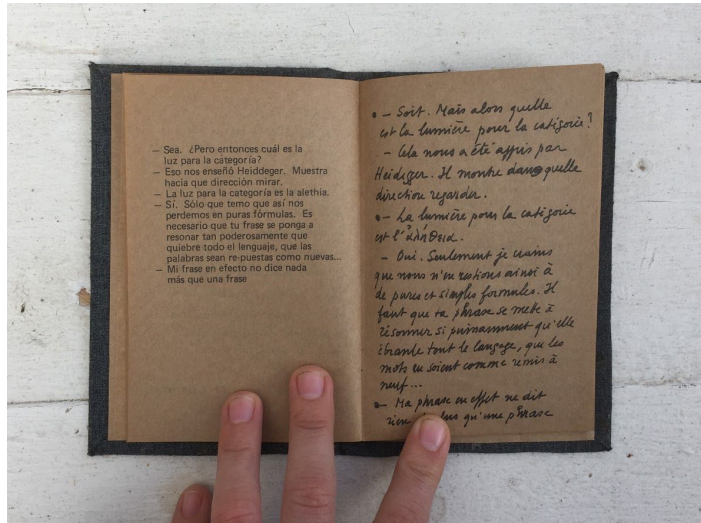 — Sea. ¿Pero entonces cuál es la
luz para la categoría?
— Eso nos enseñó Heiddeger. Muestra
hacia que dirección mirar.
— La luz para la categoría es la alethia.
— Sí. Sólo que temo que así nos
perdemos en puras fórmulas. Es
necesario que tu frase se ponga a
resonar tan poderosamente que
quiebre todo el lenguaje, que las
palabras sean re-puestas como nuevas...
— Mi frase en efecto no dice nada
más que una frase
• — Soit. Mais alors quelle
est la lumière pour la catégorie?
— Cela nous a été appris par
Heidegger. Il montre dans quelle
direction regarder.
• — La lumière pour la catégorie
est l'ἀλήθεια.
— Oui. Seulement je crains
que nous n'en restions ainsi à
de pures et simples formules. Il
faut que ta phrase se mette à
résonner si puissamment qu'elle
ébranle tout le langage, que les
mots en soient comme remis à
neuf...
• — Ma phrase en effet ne dit
rien plus qu'une phrase